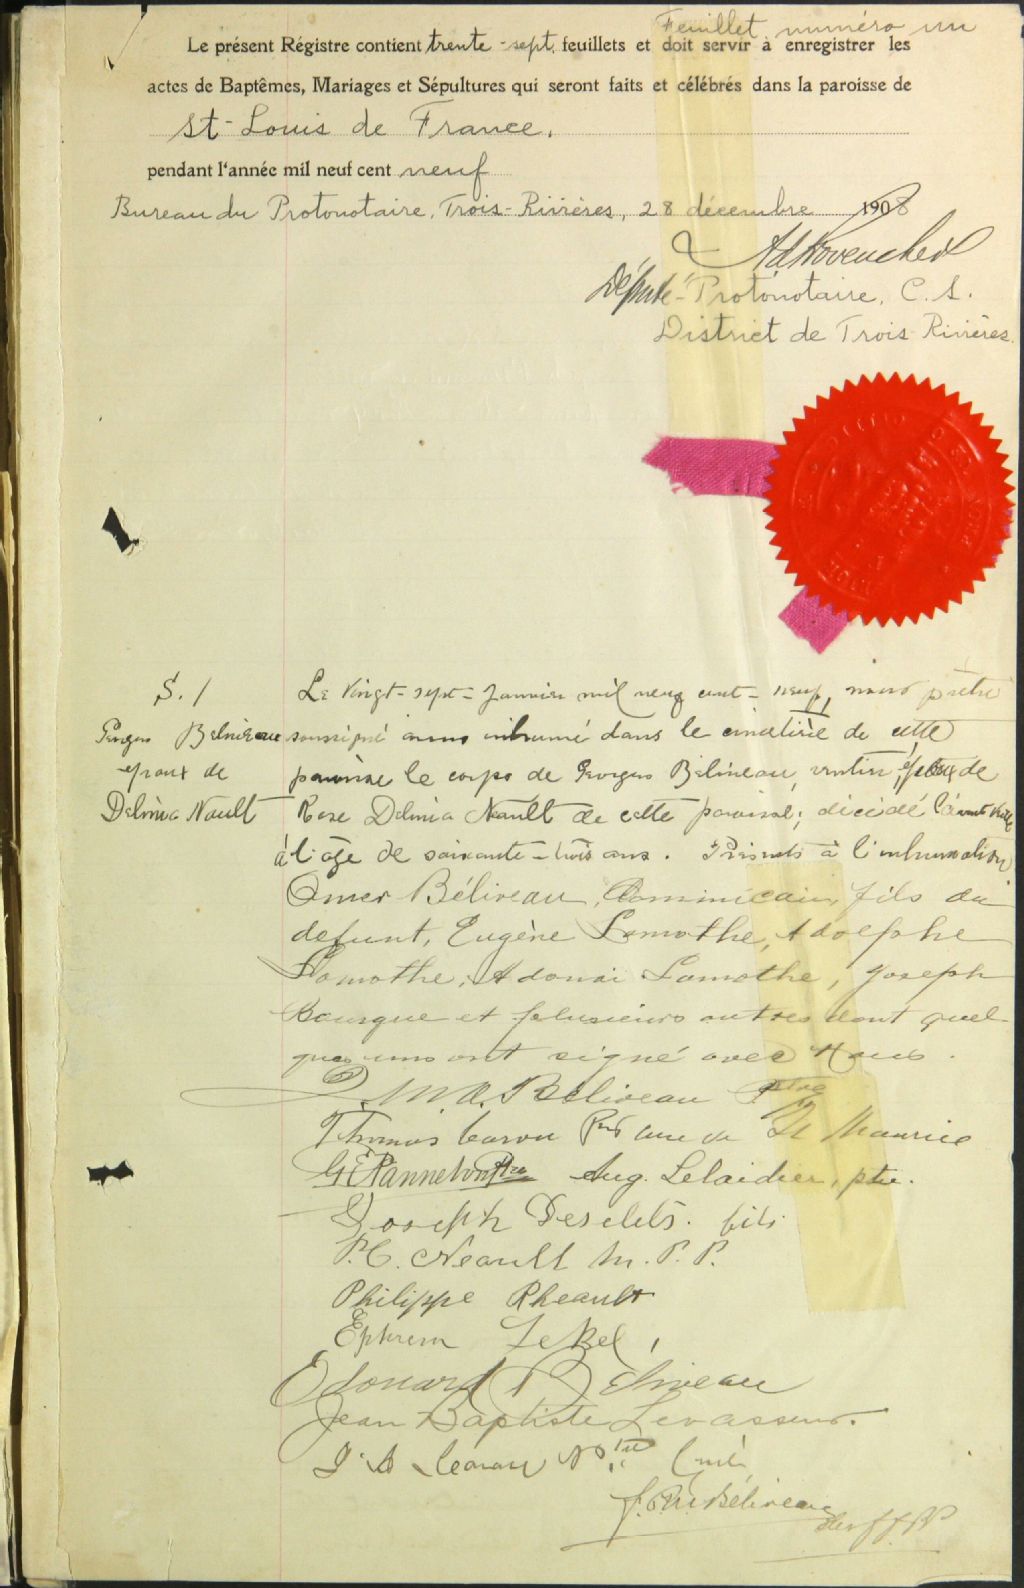 Feuillet numéro un
Le présent Régistre contient trente-sept feuillets et doit servir à enregistrer les
actes de Baptêmes, Mariages et Sépultures qui seront faits et célébrés dans la paroisse de
St-Louis de France.
pendant l'année mil neuf cent neuf
Bureau du Protonotaire, Trois-Rivières, 28 décembre 1908
Député-Protonotaire, C. S.
District de Trois-Rivières.
S. 1
Georges Béliveau
epoux de
Delmia Nault
Le Vingt-sept-Janvier mil neuf cent-neuf, nous prêtre
soussigné avons inhumé dans le cimetière de cette
paroisse le corps de Georges Béliveau, rentier, époux de
Rose Delmia Neault de cette paroisse; décédé l'avant veille
à l'âge de soixante-trois ans. Présents à l'inhumation
Omer Béliveau, Dominicain, fils du
defunt, Eugène Lamothe, Adolphe
Lamothe, Adonai Lamothe, Joseph
Bourque et plusieurs autres dont quel-
ques uns ont signé avec Nous.
Béliveau Ptre
Thomas Caron Ptre curé de St Maurice
G E Panneton Ptre Aug. Lelaidier, ptre.
Joseph Desilets. fils
P. C. Neault M. P. P.
Philippe Rheault
Ephrem
Edouard Béliveau
Jean Baptiste Levasseur.
Caron Ptre Curé
Béliveau